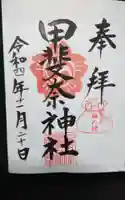 奉拝
甲斐奈神社
令和四年十一月二十日